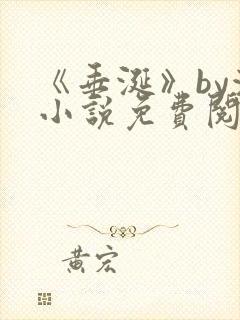 《垂涎》by
小說免費閱
黃宏